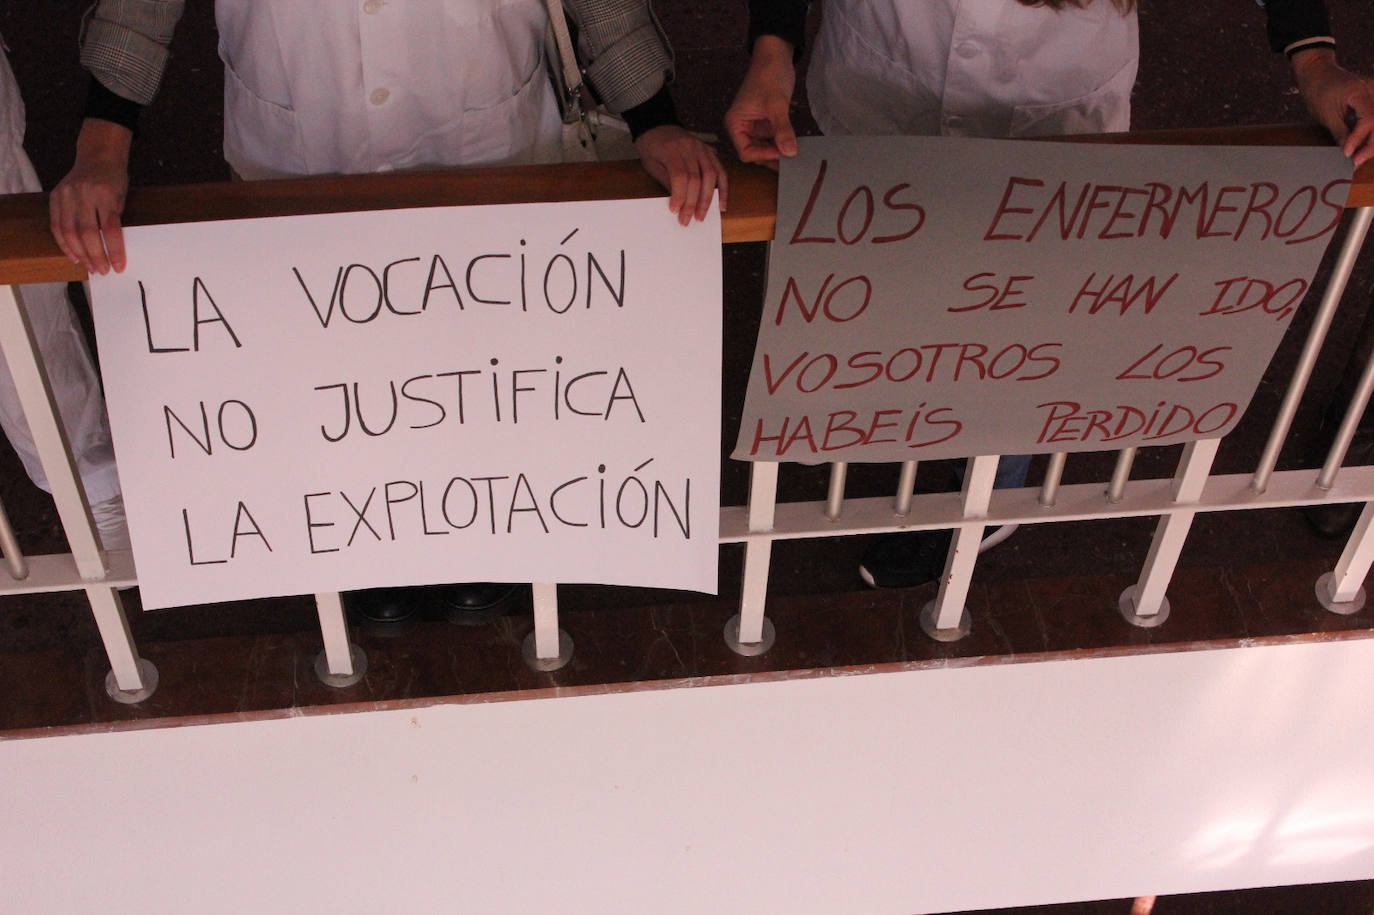 LA VOCACIÓN
NO JUSTIFICA
LA EXPLOTACIÓN
LOS ENFERMEROS
NO SE HAN IDO,
VOSOTROS LOS
HABEIS PERDIDO